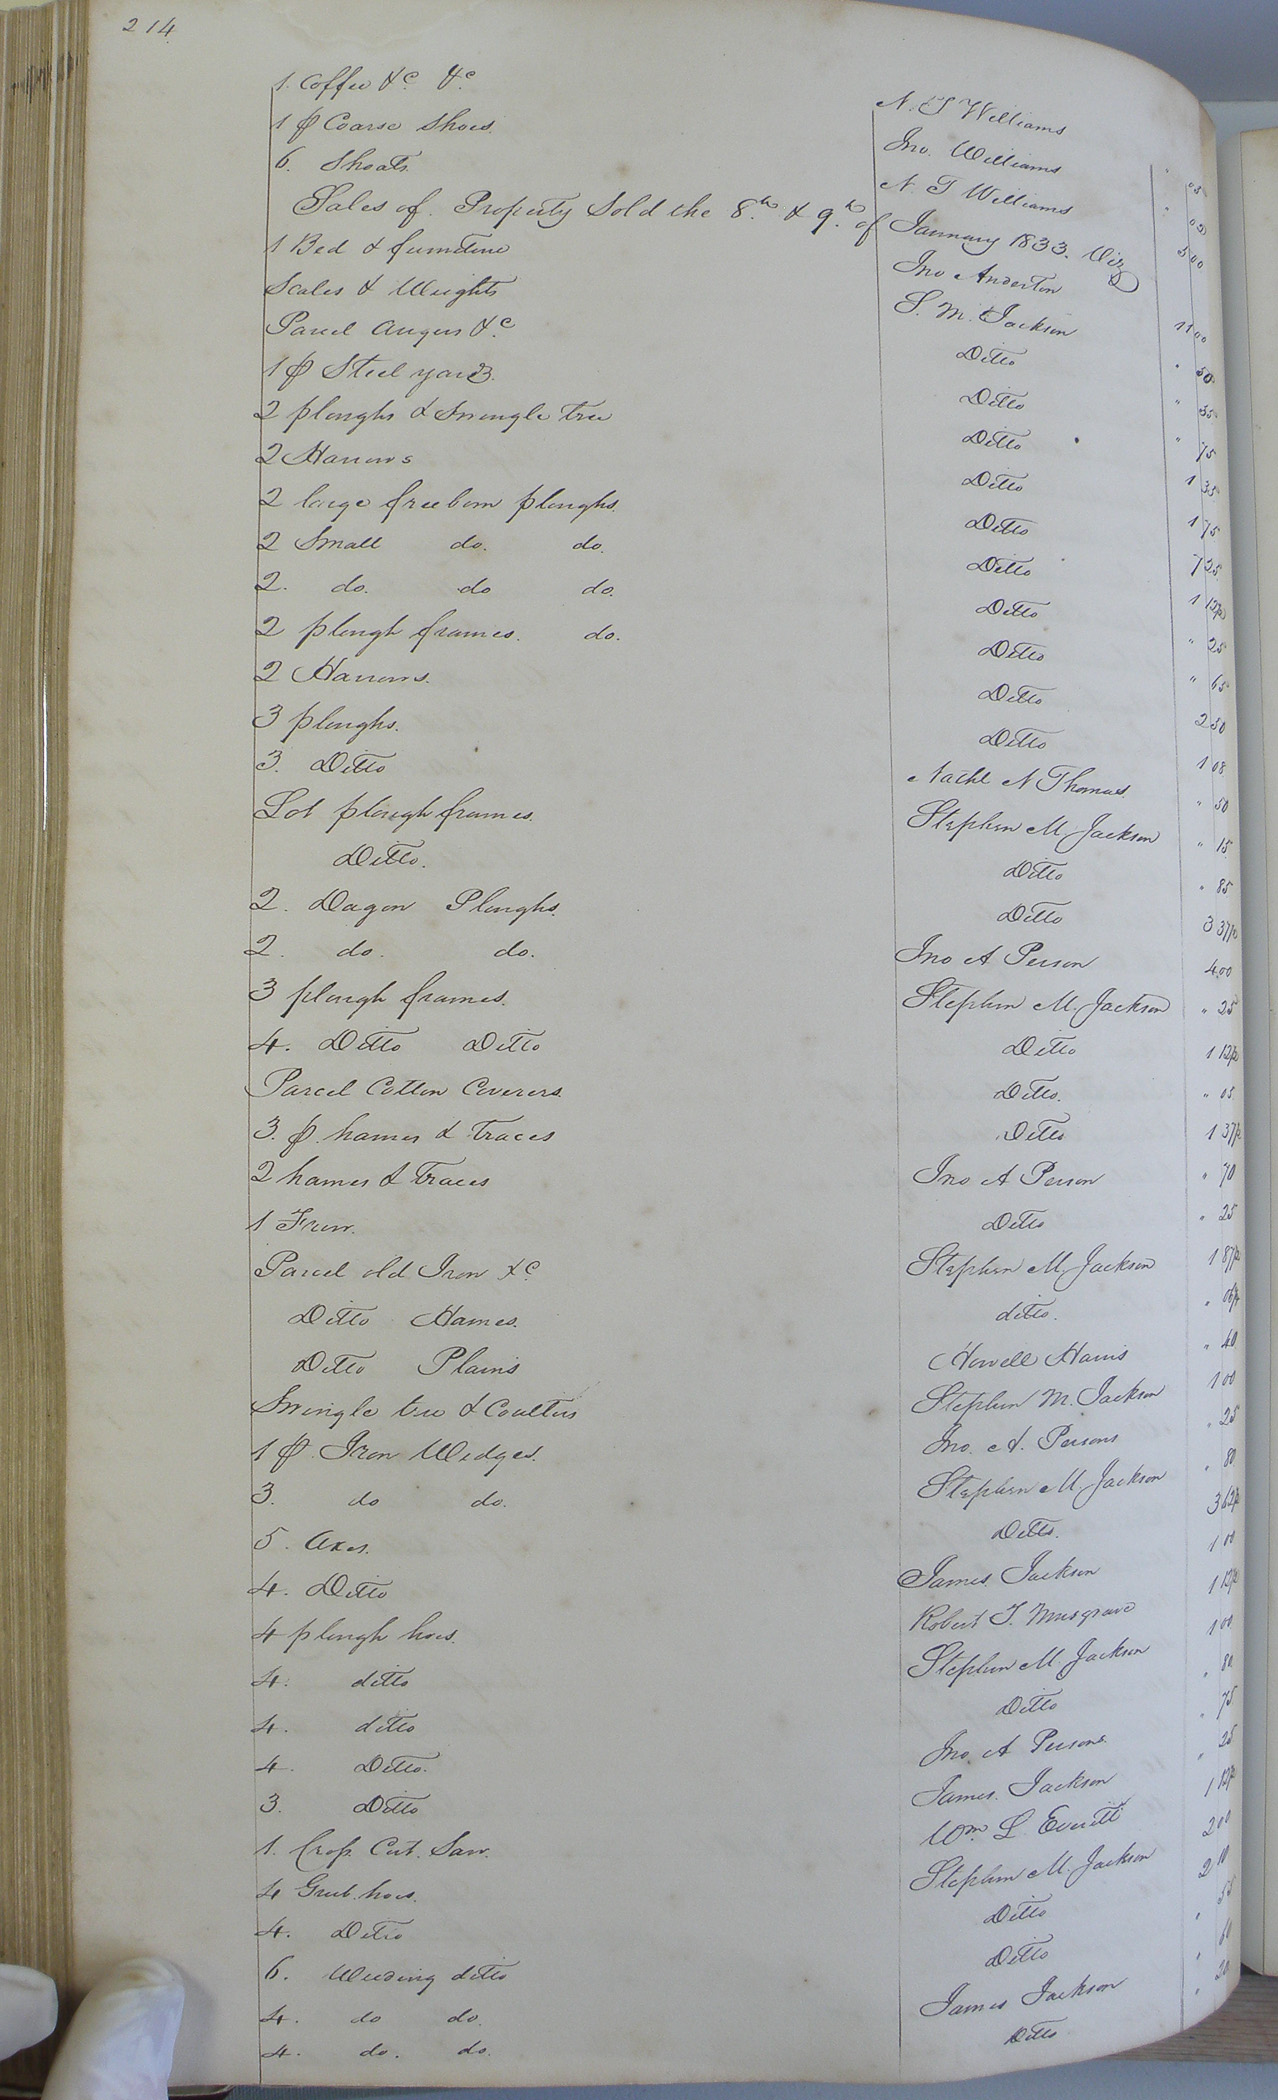 214
1. Coffee &c. &c. N. T Williams " 05
1 p Coarse Shoes. Jno. Williams " 05
6. Shoats. N T Williams 5 00
Sales of. Property Sold the 8.th & 9.th of January 1833. Viz
1 Bed & furniture Jno Anderton 11 00
Scales & Weights S. M. Jackson " 50
Parcel Augers &c. Ditto " 55
1 p Steel yards. Ditto " 75
2 ploughs & Swingle tree Ditto 1 35
2 Harrows Ditto 1 75
2 large freeborn ploughs. Ditto 7 25
2 Small do. do. Ditto 1 12½
2. do. do do. Ditto " 25
2 plough frames. do. Ditto " 65
2 Harrows. Ditto 2 50
3 ploughs. Ditto 1 08
3. Ditto Nathl N Thomas. " 50
Lot plough frames. Stephen M. Jackson " 15
Ditto. Ditto " 85
2. Dagon Ploughs. Ditto 3 37½
2. do. do. Jno A Person 4 00
3 plough frames. Stephen M. Jackson " 25
4. Ditto Ditto Ditto 1 12½
Parcel Cotton Coverers. Ditto. " 05
3. p. hames & traces Ditto 1 37½
2 hames & traces Jno A Person " 70
1 Frow. Ditto " 25
Parcel old Iron &c. Stephen M. Jackson 1 87½
Ditto Hames. ditto. " 06¼
Ditto Plains Howell Harris " 40
Swingle tree & Coulters Stephen M. Jackson 1 00
1 p. Iron Wedges. Jno. A. Persons " 25
3. do do. Stephen M. Jackson " 80
5. Axes. Ditto. 3 62½
4. Ditto James. Jackson 1 00
4 plough hoes. Robert T. Musgrave 1 12½
4. ditto Stephen M. Jackson 1 00
4. ditto Ditto " 80
4. Ditto. Jno. A Persons. " 75
3. Ditto James. Jackson " 25
1. Crop. Cut. Saw. Wm. L Everitt 1 12½
4 Grub. hoes. Stephen M. Jackson 2 00
4. Ditto Ditto 2 10
6. Weeding ditto Ditto " 55
4. do do. James Jackson " 60
4. do. do. Ditto " 20